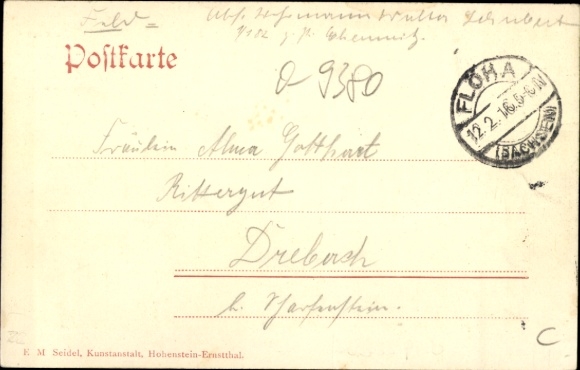 Feld =
Postkarte
a 9380
FLÖHA
12.2.16.5-6N
(SACHSEN)
Fräulein Alma Gotthart
Rittergut
Drebach
b. Scharfenstein.
C
E M Seidel, Kunstanstalt, Hohenstein-Ernstthal.